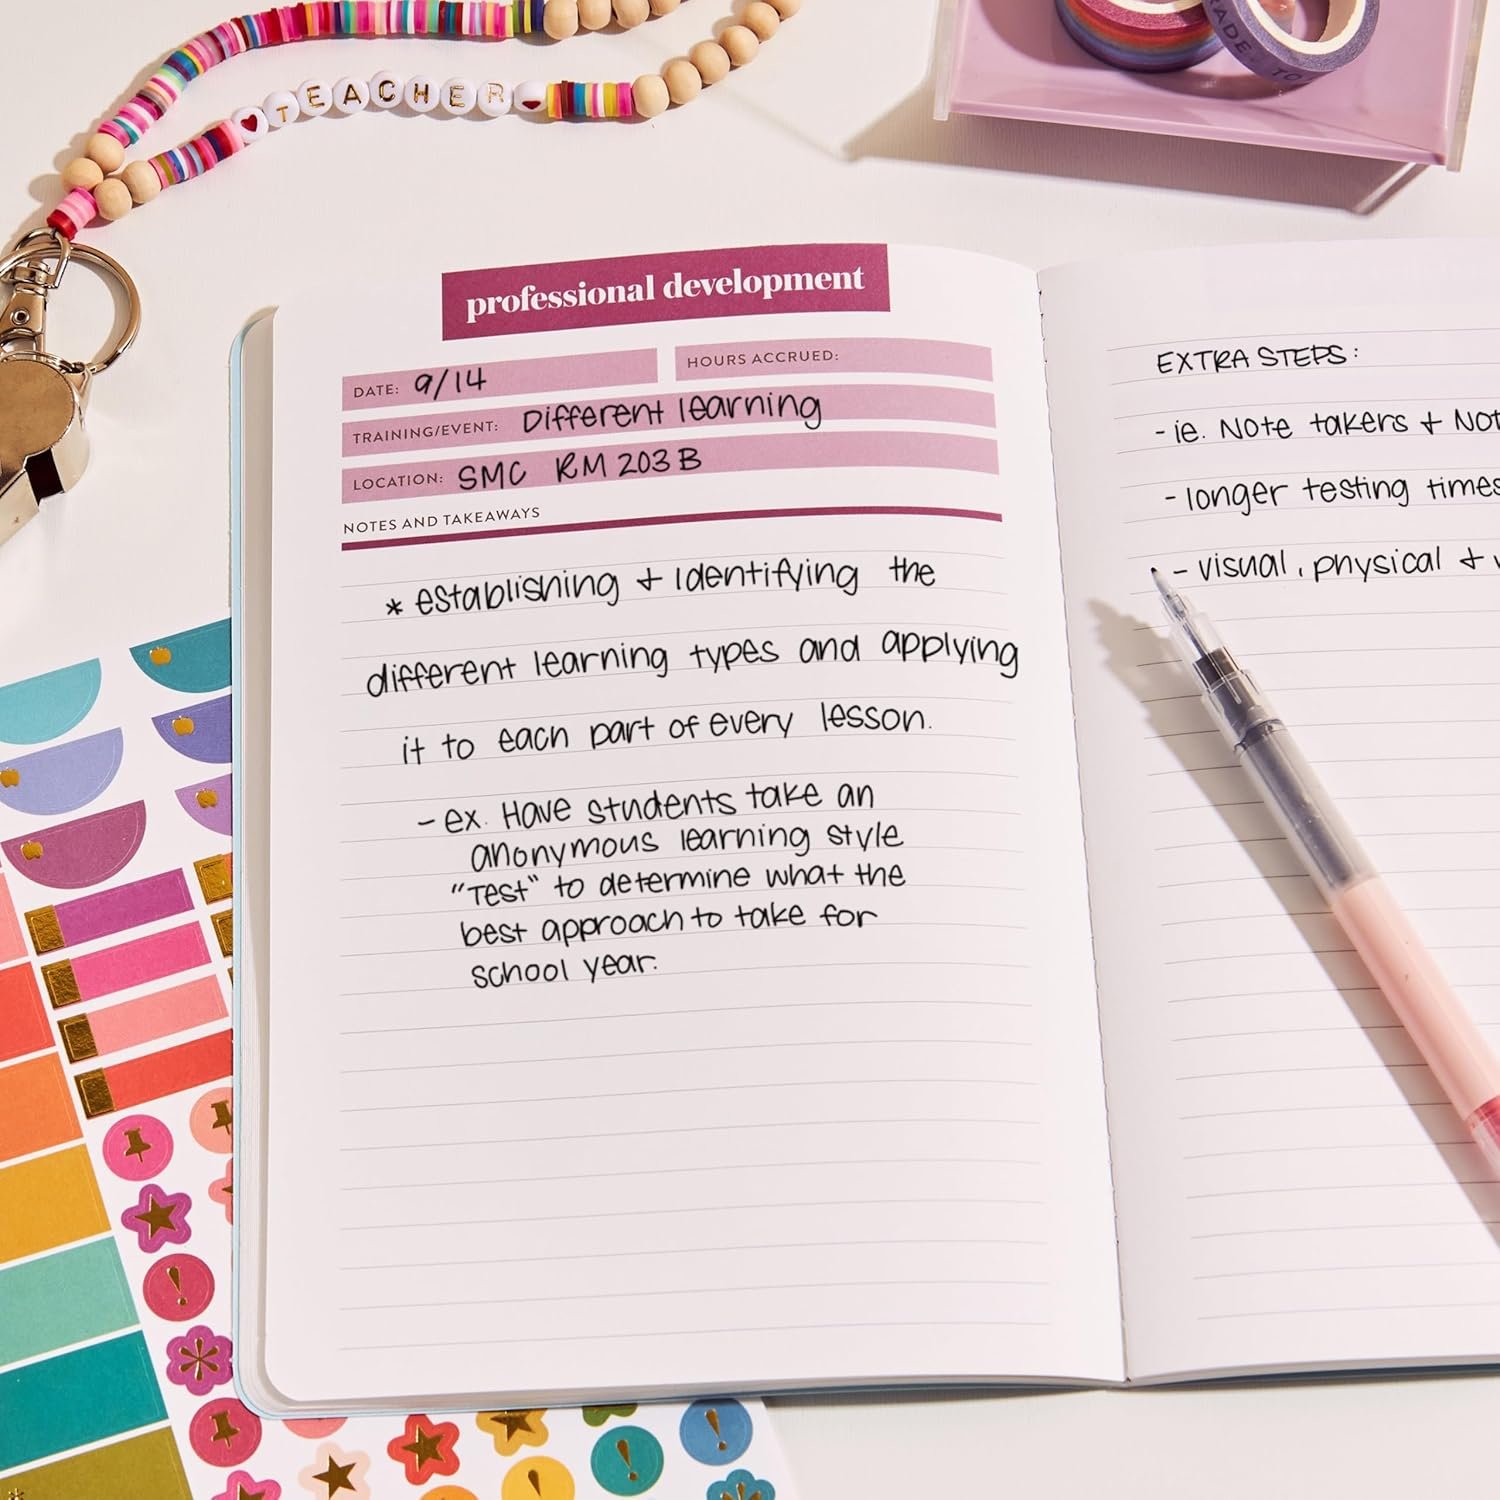 TEACHER
RADE TO
professional development
DATE: 9/14
HOURS ACCRUED:
TRAINING/EVENT: Different learning
LOCATION: SMC RM 203 B
NOTES AND TAKEAWAYS
* establishing + Identifying the
different learning types and applying
it to each part of every lesson.
- ex. Have students take an
anonymous learning style
"Test" to determine what the
best approach to take for
school year.
EXTRA STEPS:
- ie. Note takers + Not
- longer testing times
- visual, physical +